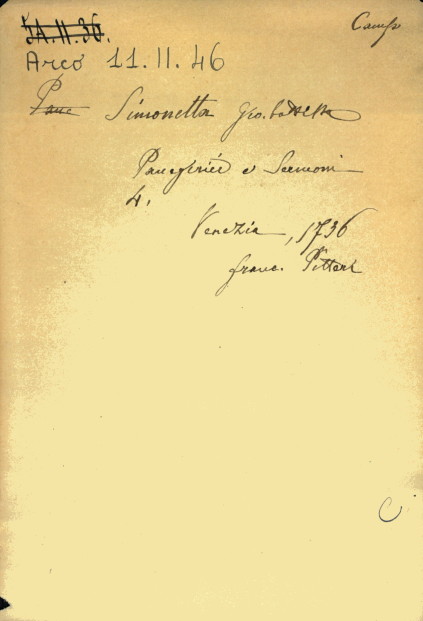 Camp
5A.11.36.
Arco 11.11.46
Pane Simonetta Gio. battista
Panegirici e Sermoni
4.
Venezia, 1736
franc. Pitteri
C